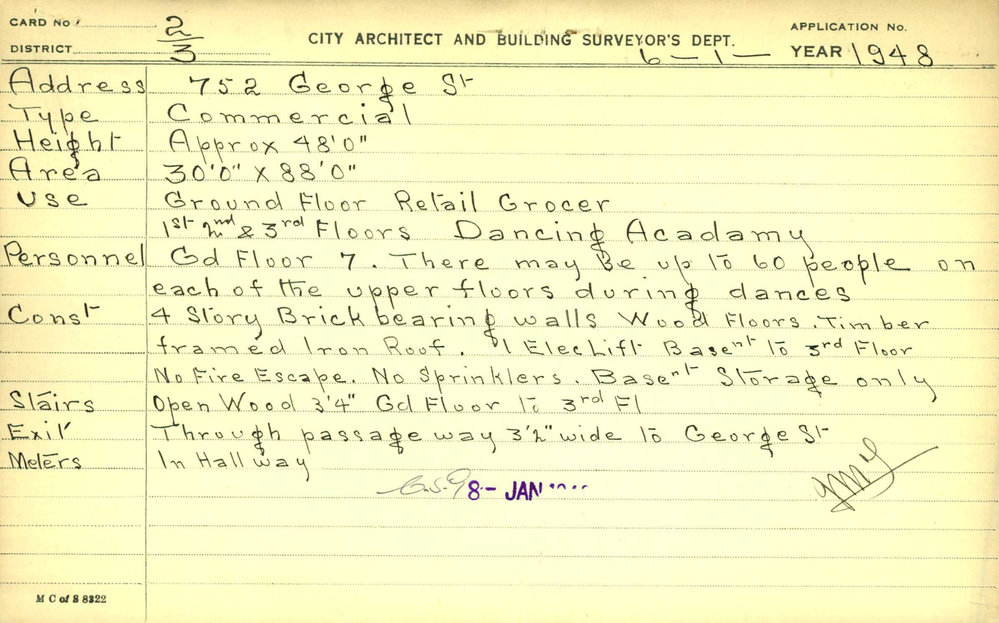 CARD No. 2
DISTRICT 3
CITY ARCHITECT AND BUILDING SURVEYOR'S DEPT.
APPLICATION No.
6-1- YEAR 1948
Address 752 George St
Type Commercial
Height Approx 48'0"
Area 30'0" X 88'0"
Use Ground Floor Retail Grocer
1st 2nd & 3rd Floors Dancing Acadamy
Personnel Gd Floor 7. There may be up to 60 people on
each of the upper floors during dances
Const 4 Story Brick bearing walls Wood Floors. Timber
framed Iron Roof. 1 Elec Lift Basent to 3rd Floor
No Fire Escape. No Sprinklers. Basent Storage only
Stairs Open Wood 3'4" Gd Floor to 3rd Fl
Exit Through passage way 3'2" wide to George St
Meters In Hallway
8- JAN
M C of S 8322